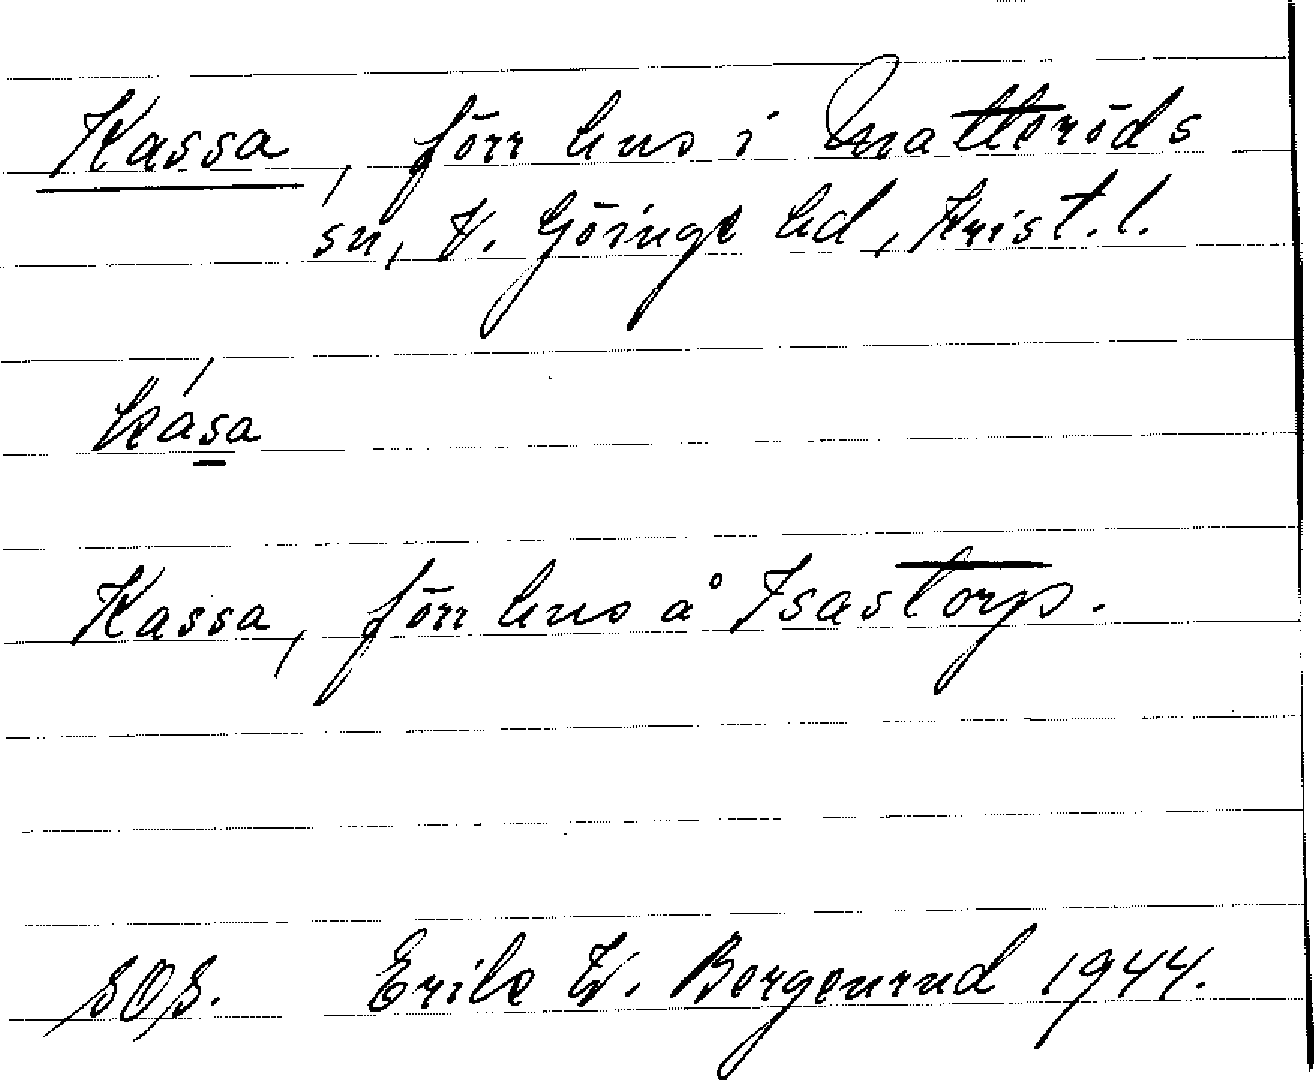 Kassa, förr hus i Matteröds
sn, V. Göinge hd, Krist. l.
kása
Kassa, förr hus å Isastorp.
SOS. Erik W. Borgenrud 1944.